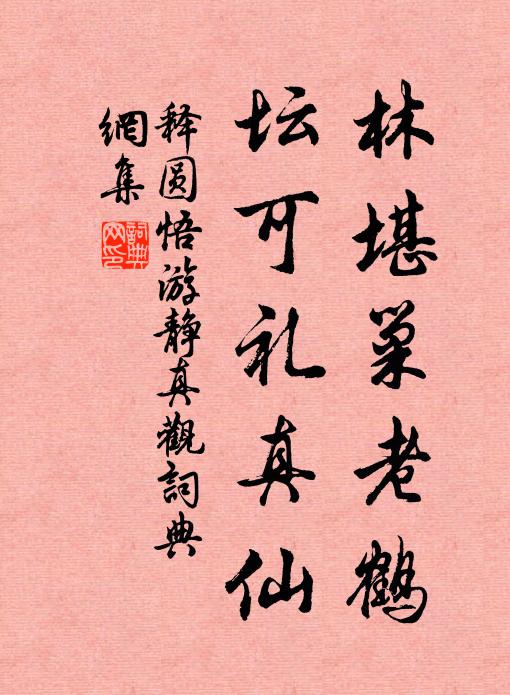 林堪巢老鹤
坛可礼真仙
释圆悟游静真觀詞典
網集
詞典
网印